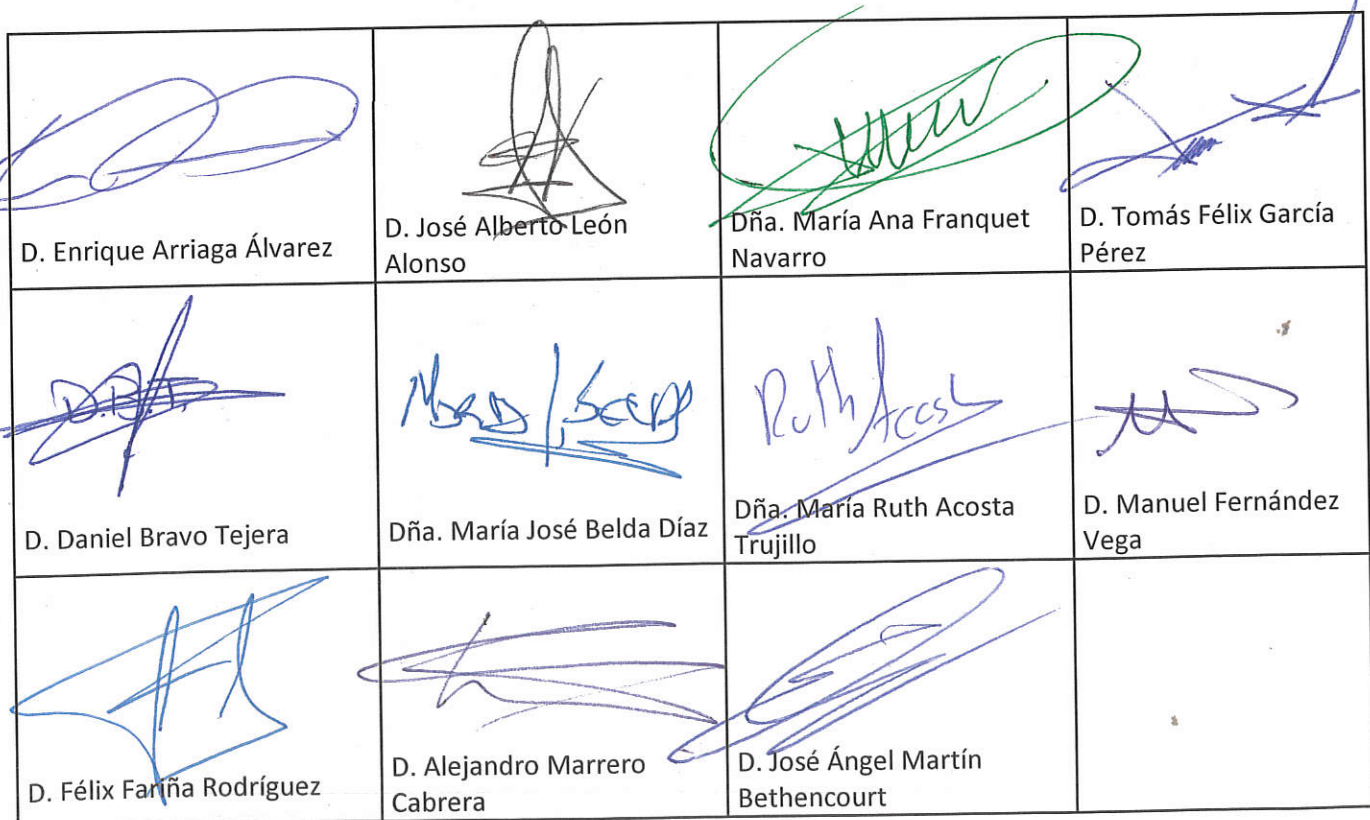 D. Enrique Arriaga Álvarez
D. José Alberto León
Alonso
Dña. María Ana Franquet
Navarro
D. Tomás Félix García
Pérez
D.B.T.
D. Daniel Bravo Tejera
Dña. María José Belda Díaz
Ruth Acosta
Dña. María Ruth Acosta
Trujillo
D. Manuel Fernández
Vega
D. Félix Fariña Rodríguez
D. Alejandro Marrero
Cabrera
D. José Ángel Martín
Bethencourt